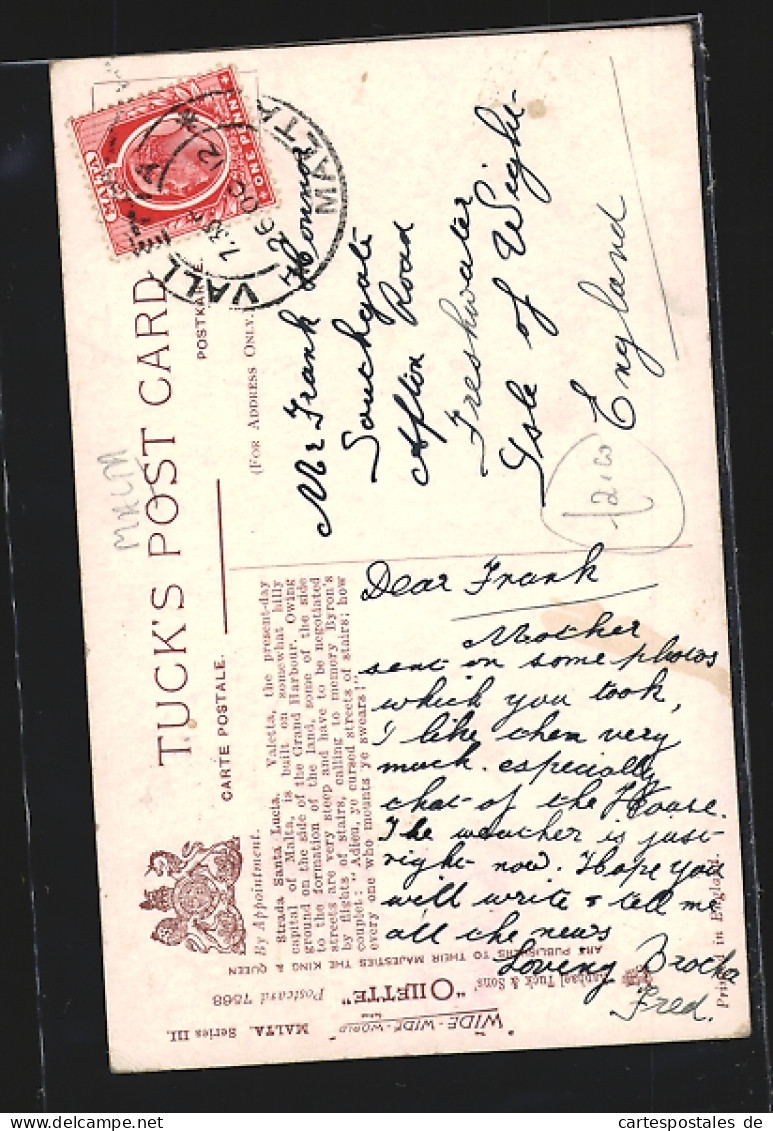 TUCK'S POST CARD
CARTE POSTALE.
POSTKARTE.
(FOR ADDRESS ONLY.)
MALTA
ONE PENNY
MALTA
VALLETTA
7.30
26 OC 12
MALTA
By Appointment.
Strada Santa Lucia. Valetta, the present-day
capital of Malta, is built on somewhat hilly
ground on the side of the Grand Harbour. Owing
to the formation of the land, some of the side
streets are very steep and have to be negotiated
by flights of stairs, calling to memory Byron's
couplet: "Adieu, ye cursed streets of stairs; how
every one who mounts ye swears!"
Dear Frank
Mother
sent on some photos
which you took,
I like them very
much. especially
that of the House.
The weather is just
right now. Hope you
will write & tell me
all the news
Loving Brother
Fred.
Mr Frank
Southgate
Afton Road
Freshwater
Isle of Wight
England
MALTA. Series III.
"WIDE-WIDE-WORLD"
"OILETTE" Postcard 7568
Raphael Tuck & Sons'
ART PUBLISHERS TO THEIR MAJESTIES THE KING & QUEEN
Printed in England.
cartespostales de
www.cartespostales.de